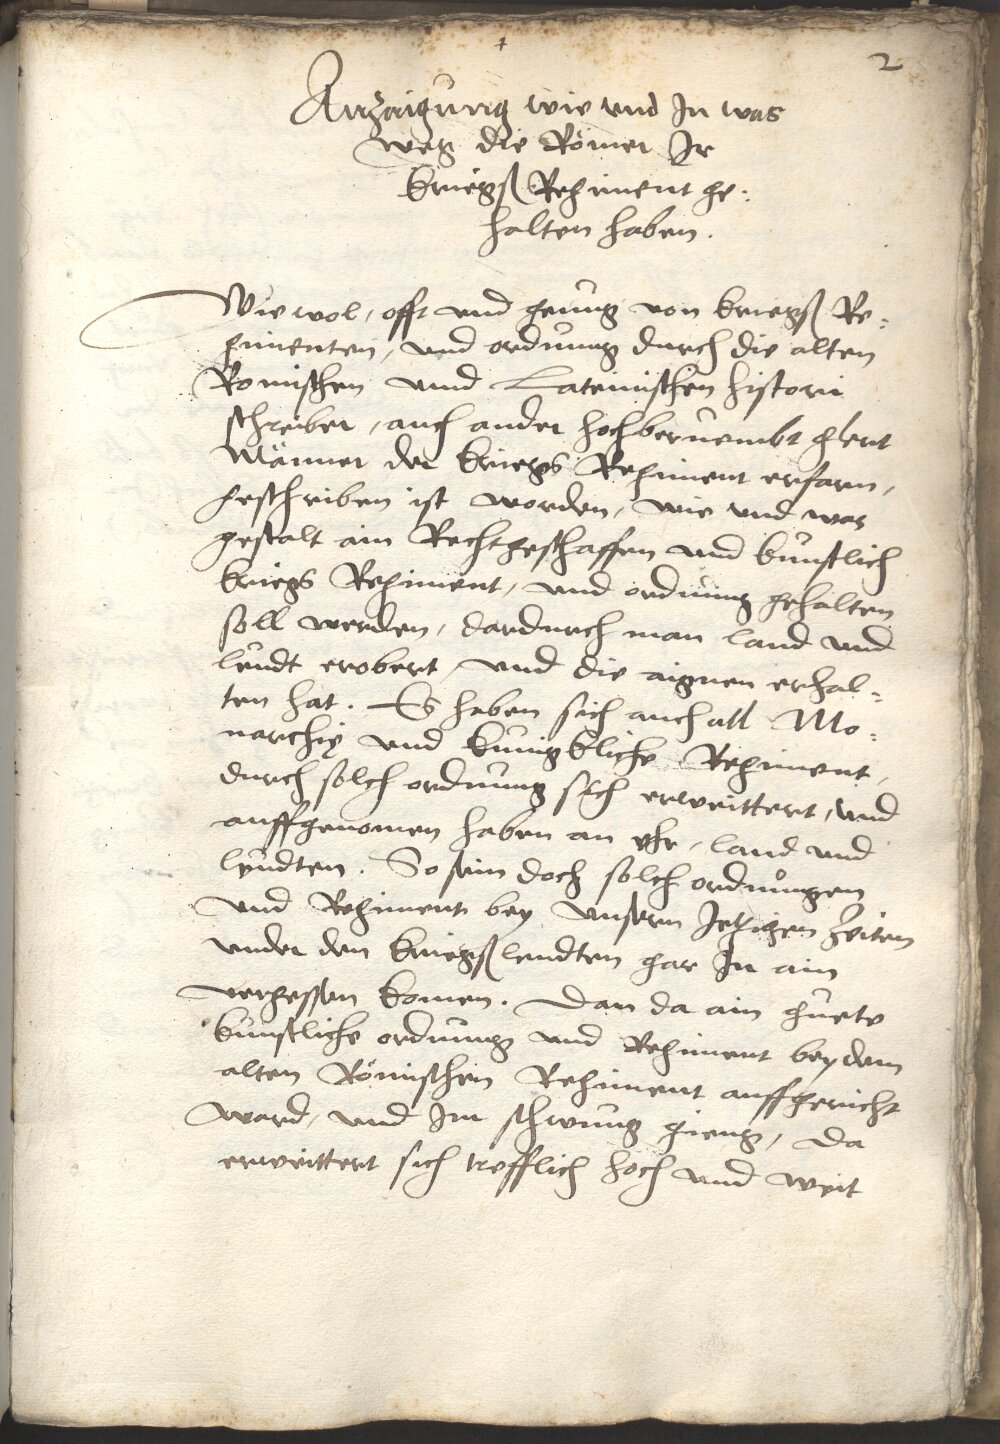 2
Anzaigung wie vnd In was
weg die Römer Ir
kriegß Regiment ge:
halten haben.
Wiewol, offt vnd genug von kriegß Re:
gimenten, vnd ordnung durch die alten
Romischen vnnd Lateinischen historii
schreiber, auch ander hochberuembt glert
Männer der kriegs Regiment erfarn,
beschriben ist worden, wie vnd was
gestalt ain Rechtgeschaffen vnd kunstlich
kriegs Regiment, vnd ordnung gehalten
soll werden, dardurch man land vnd
leudt erobert, vnd die aignen erhal-
ten hat. Es haben sich auch all Mo:
narchię vnd kunigkliche Regiment,
durch solch ordnung sich erweittert, vnd
auffgenomen haben an ehr, land vnd
leudten. So sein doch solch ordnungen
vnd Regiment bey vnsern Jetzigen Zeiten
vnder den kriegßleudten gar In ain
vergessen komen. Dan da ain guete
kunstliche ordnung vnd Regiment bey dem
alten Römischen Regiment auffgericht
ward, vnd Im schwung gieng, da
erweittert sich trefflich hoch vnd weit